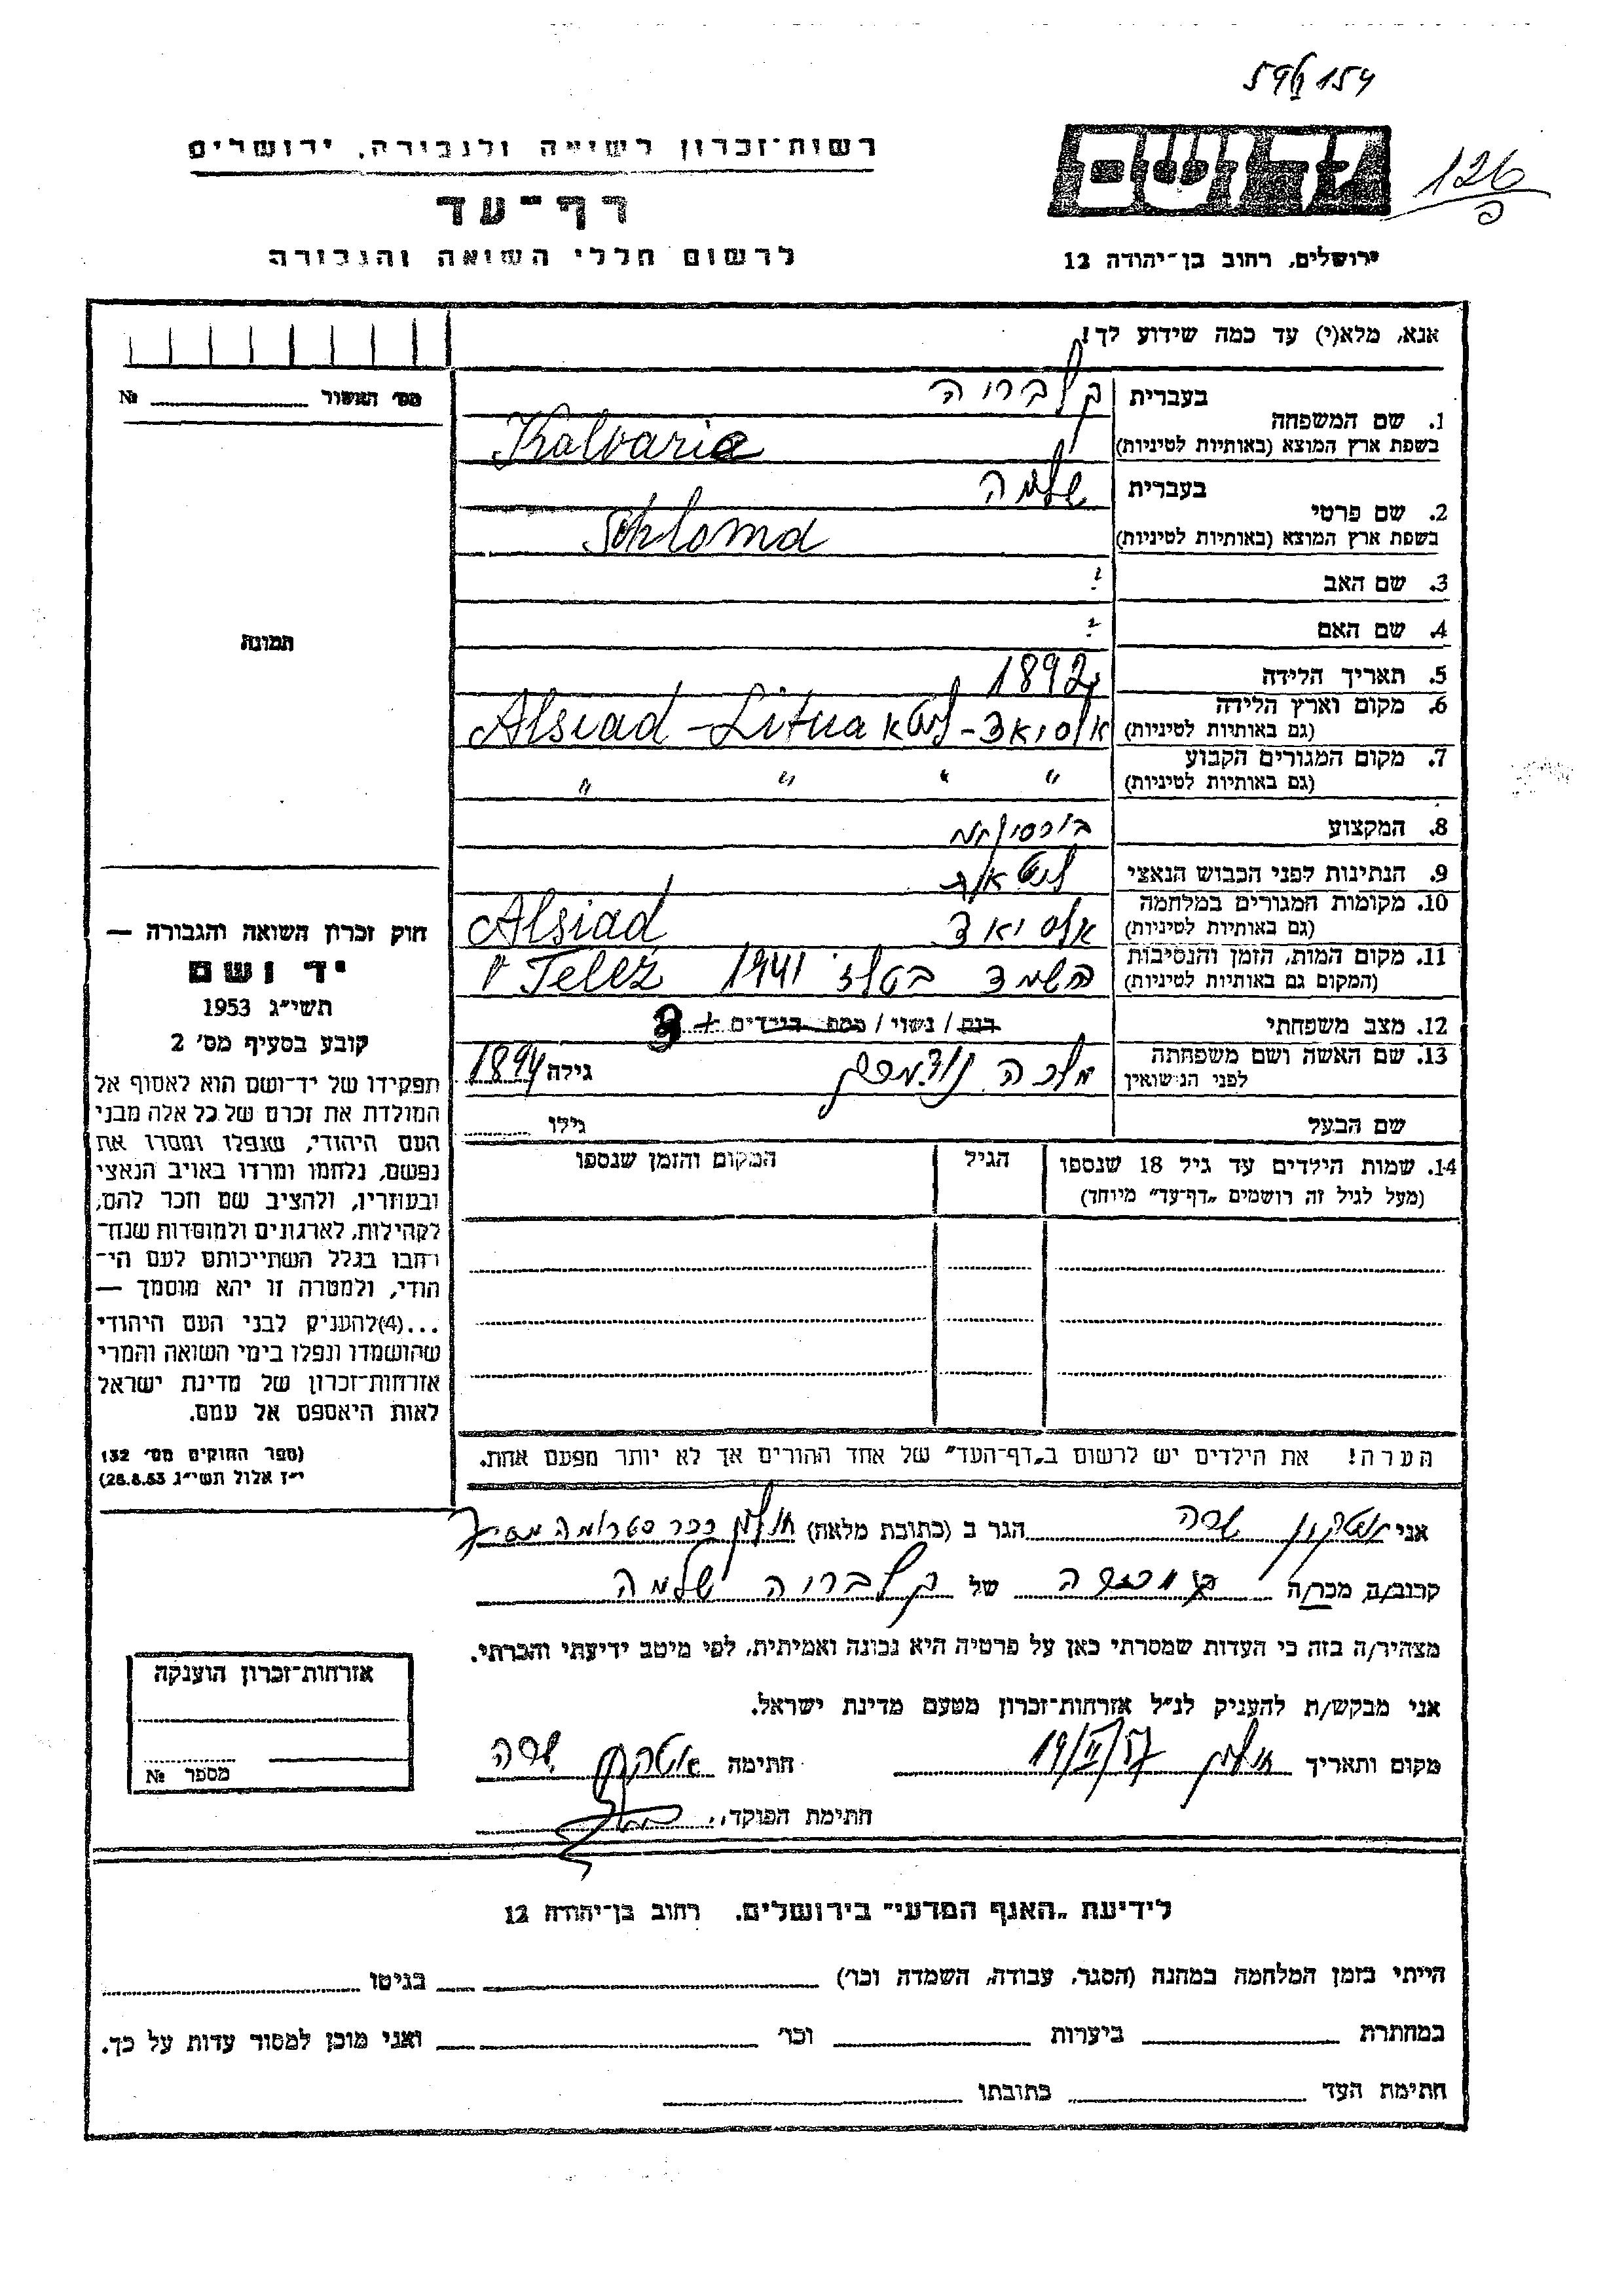 154
126
רשות־זכרון לשואה ולגבורה, ירושלים
דף־עד
לרשום חללי השואה והגבורה
ירושלים, רחוב בן־יהודה 12
אנא, מלא(י) עד כמה שידוע לך!
מס' האשור № 
1. שם המשפחה
בעברית קלבריה
בשפת ארץ המוצא (באותיות לטיניות) Kalvaria
2. שם פרטי
בעברית שלמה
בשפת ארץ המוצא (באותיות לטיניות) Schloma
3. שם האב ?
4. שם האם ?
5. תאריך הלידה 1892
6. מקום וארץ הלידה
(גם באותיות לטיניות) אלסיאד - ליטא Alsiad - Litua
7. מקום המגורים הקבוע
(גם באותיות לטיניות) " " " "
8. המקצוע
9. הנתינות לפני הכבוש הנאצי ליטאית
10. מקומות המגורים במלחמה
(גם באותיות לטיניות) אלסיאד Alsiad
11. מקום המות, הזמן והנסיבות
(המקום גם באותיות לטיניות) השמד בטלז 1941 Telež
12. מצב משפחתי רוק / נשוי / מספר הילדים + 3
13. שם האשה ושם משפחתה
לפני הנישואין מלכה גילה 1894
שם הבעל גילו
14. שמות הילדים עד גיל 18 שנספו
(מעל לגיל זה רושמים „דף־עד” מיוחד)
הגיל
המקום והזמן שנספו
הערה! את הילדים יש לרשום ב„דף־העד” של אחד ההורים אך לא יותר מפעם אחת.
תמונה
חוק זכרון השואה והגבורה —
יד ושם
תשי״ג 1953
קובע בסעיף מס' 2
תפקידו של יד־ושם הוא לאסוף אל
המולדת את זכרם של כל אלה מבני
העם היהודי, שנפלו ומסרו את
נפשם, נלחמו ומרדו באויב הנאצי
ובעוזריו, ולהציב שם וזכר להם,
לקהילות, לארגונים ולמוסדות שנח־
רבו בגלל השתייכותם לעם הי־
הודי, ולמטרה זו יהא מוסמך —
...(4)להעניק לבני העם היהודי
שהושמדו ונפלו בימי השואה והמרי
אזרחות־זכרון של מדינת ישראל
לאות היאספם אל עמם.
(ספר החוקים מס' 132
י״ז אלול תשי״ג 28.8.53)
אני שרה הגר ב (כתובת מלאה) חולון ככר סטרומה
קרוב/ה, מכר/ה של קלבריה שלמה
מצהיר/ה בזה כי העדות שמסרתי כאן על פרטיה היא נכונה ואמיתית, לפי מיטב ידיעתי והכרתי.
אני מבקש/ת להעניק לנ״ל אזרחות־זכרון מטעם מדינת ישראל.
מקום ותאריך חולון 19/II/57 חתימה שרה
חתימת הפוקד
אזרחות־זכרון הוענקה
מספר №
לידיעת „האגף המדעי” בירושלים, רחוב בן־יהודה 12
הייתי בזמן המלחמה במחנה (הסגר, עבודה, השמדה וכר') בגיטו
במחתרת ביערות וכר' ואני מוכן למסור עדות על כך.
חתימת העד כתובתו